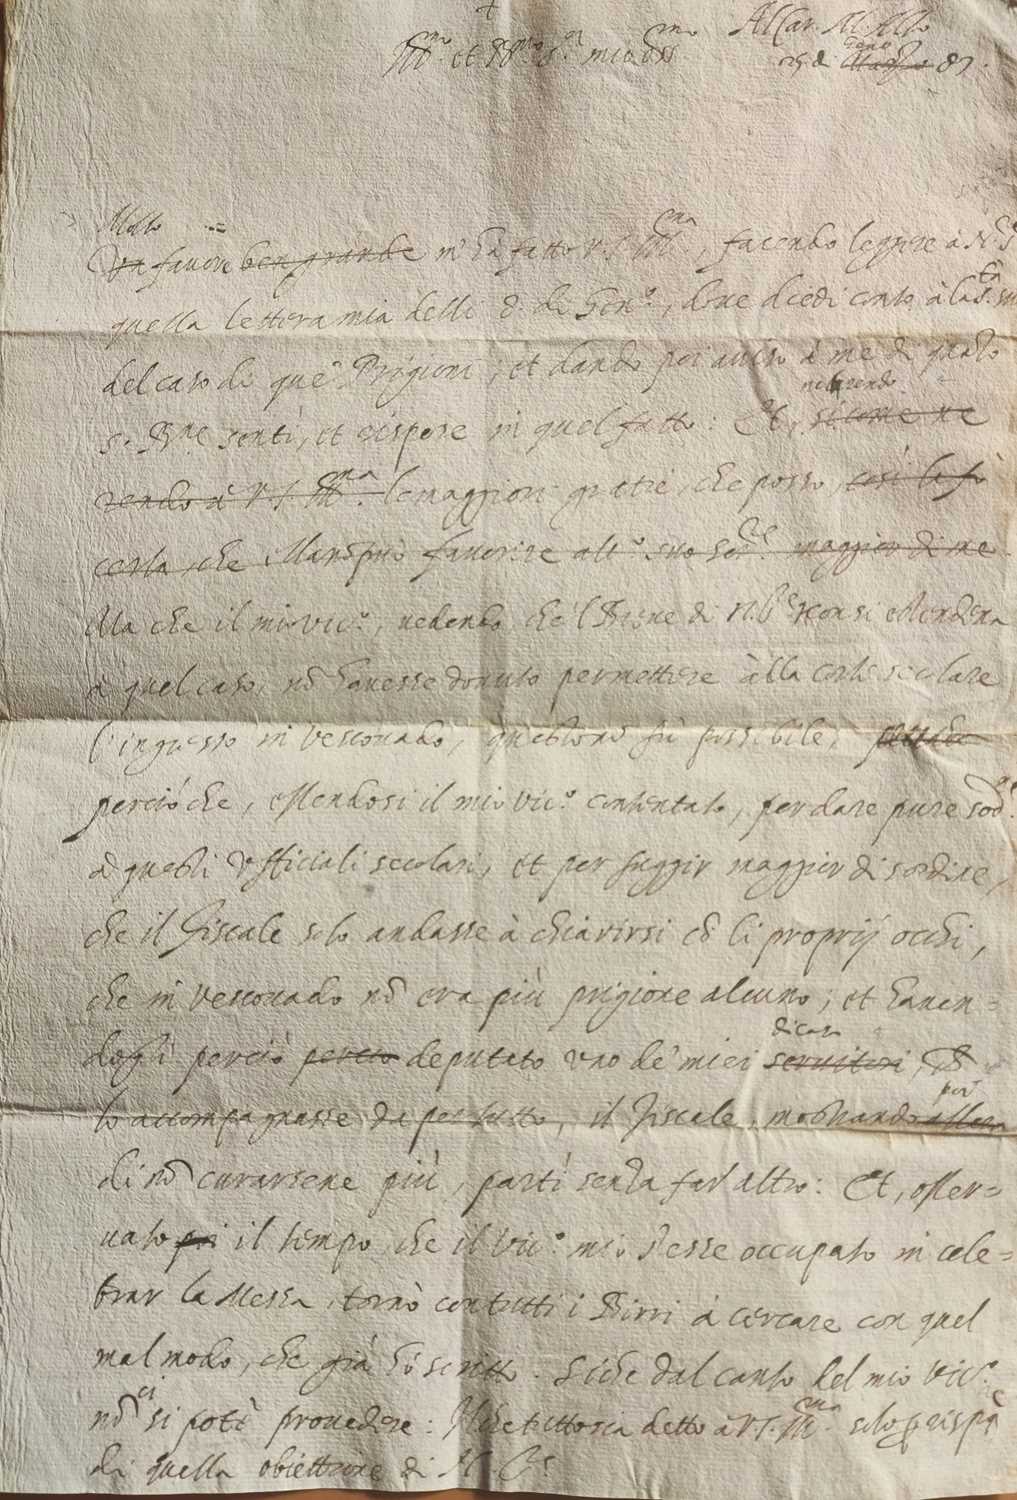 +
Ill.mo et R.mo S.or mio Oss.mo
Al Car. M. Allo
25 di Marzo Genro 87.
Molto
Un favore ben grande m'hà fatto V.S. Ill.ma, facendo leggere à N. S.
quella lettera mia delli 8. di Gen.o, dove diedi conto à la S.tà sua
del caso di que' Prigioni; et dando poi aviso à me di quanto
S. B.ne sentì, et rispose in quel fatto: Et, sicome ne
rendendo
rendo à V.S. Ill.ma le maggiori gratie, che posso, così la fò
certa, che Mandpuò favorire alt.o suo Ser.re maggior di me
Ma che il mio Vic.o, vedendo che'l Breve di N. S.re non si estendeva
à quel caso, nõ havesse dovuto permettere à la corte secolare
l'ingresso in Vescovado, questo nõ fù possibile,
perciò che, essendosi il mio Vic.o contentato, per dare pure sod.e
à questi Ufficiali secolari, et per fuggir maggior disordine,
che il Fiscale solo andasse à chiarirsi cõ li proprij occhi,
che in Vescovado nõ era più prigione alcuno; et haven=
dogli perciò percio deputato uno de' miei servitori
di casa
lo accompagnasse da per tutto, il Fiscale, mostrando allora
però
di nõ curarsene più, partì senza far altro: Et, osser=
vato poi il tempo, che il Vic.o mio stesse occupato in cele=
brar la Messa, tornò con tutti i Birri à cercare con quel
mal modo, che già hò scritto. Siche dal canto del mio Vic.o
nõ ci si potè provedere: Ilche tutto sia detto à V.S. Ill.ma solo p rispõ
di quella obiettione di N. S.re